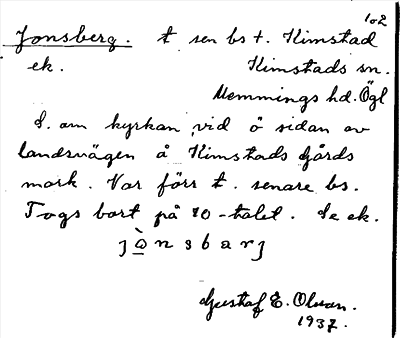 1o2
Jonsberg. t sen bs t. Kimstad
ek. Kimstads sn.
Memmings hd. Ögl
S. om kyrkan vid ö sidan av
landsvägen å Kimstads gårds
mark. Var förr t. senare bs.
Togs bort på 80-talet. Se ek.
j ò n s b a r j
Gustaf E. Olsson.
1937.